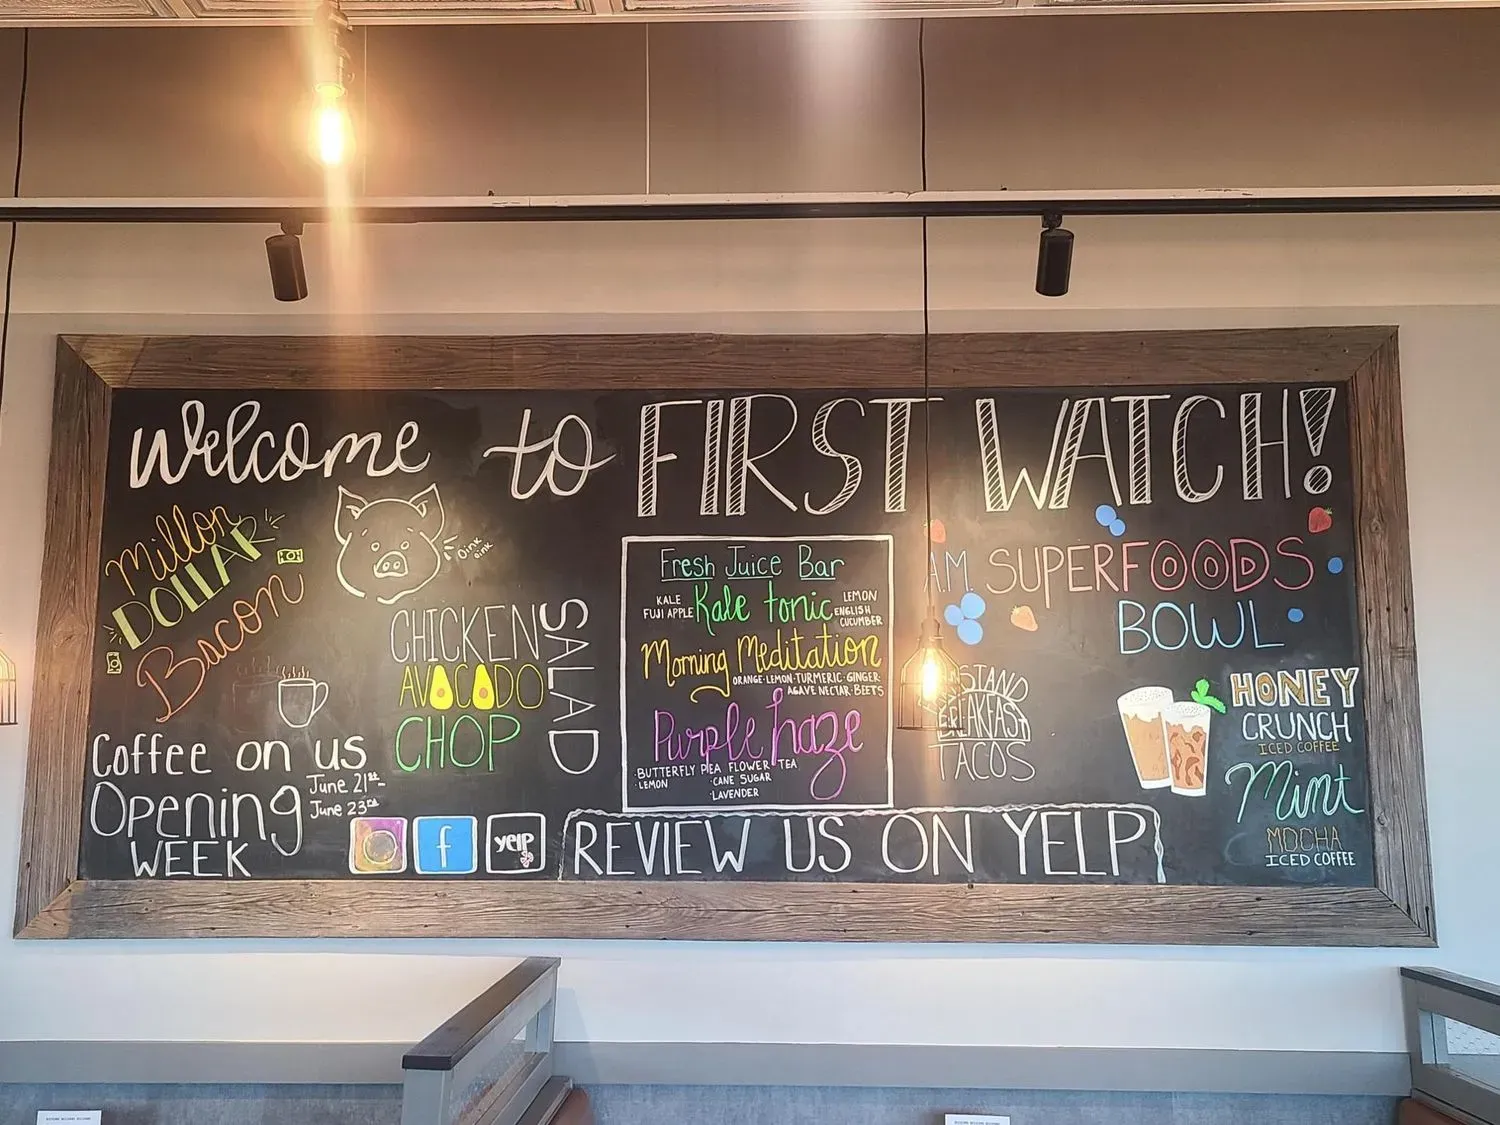 Welcome to FIRST WATCH!
Millon
DOLLAR
Bacon
Oink
oink
CHICKEN
AVOCADO
CHOP
SALAD
Coffee on us
Opening
WEEK
June 21st-
June 23rd
yelp
Fresh Juice Bar
KALE
FUJI APPLE
Kale tonic
LEMON
ENGLISH
CUCUMBER
Morning Meditation
ORANGE·LEMON·TURMERIC·GINGER·
AGAVE NECTAR·BEETS
Purple haze
·BUTTERFLY PEA FLOWER TEA
·LEMON ·CANE SUGAR
·LAVENDER
REVIEW US ON YELP
A.M. SUPERFOODS
BOWL
BREAKFAST
TACOS
HONEY
CRUNCH
ICED COFFEE
Mint
MOCHA
ICED COFFEE